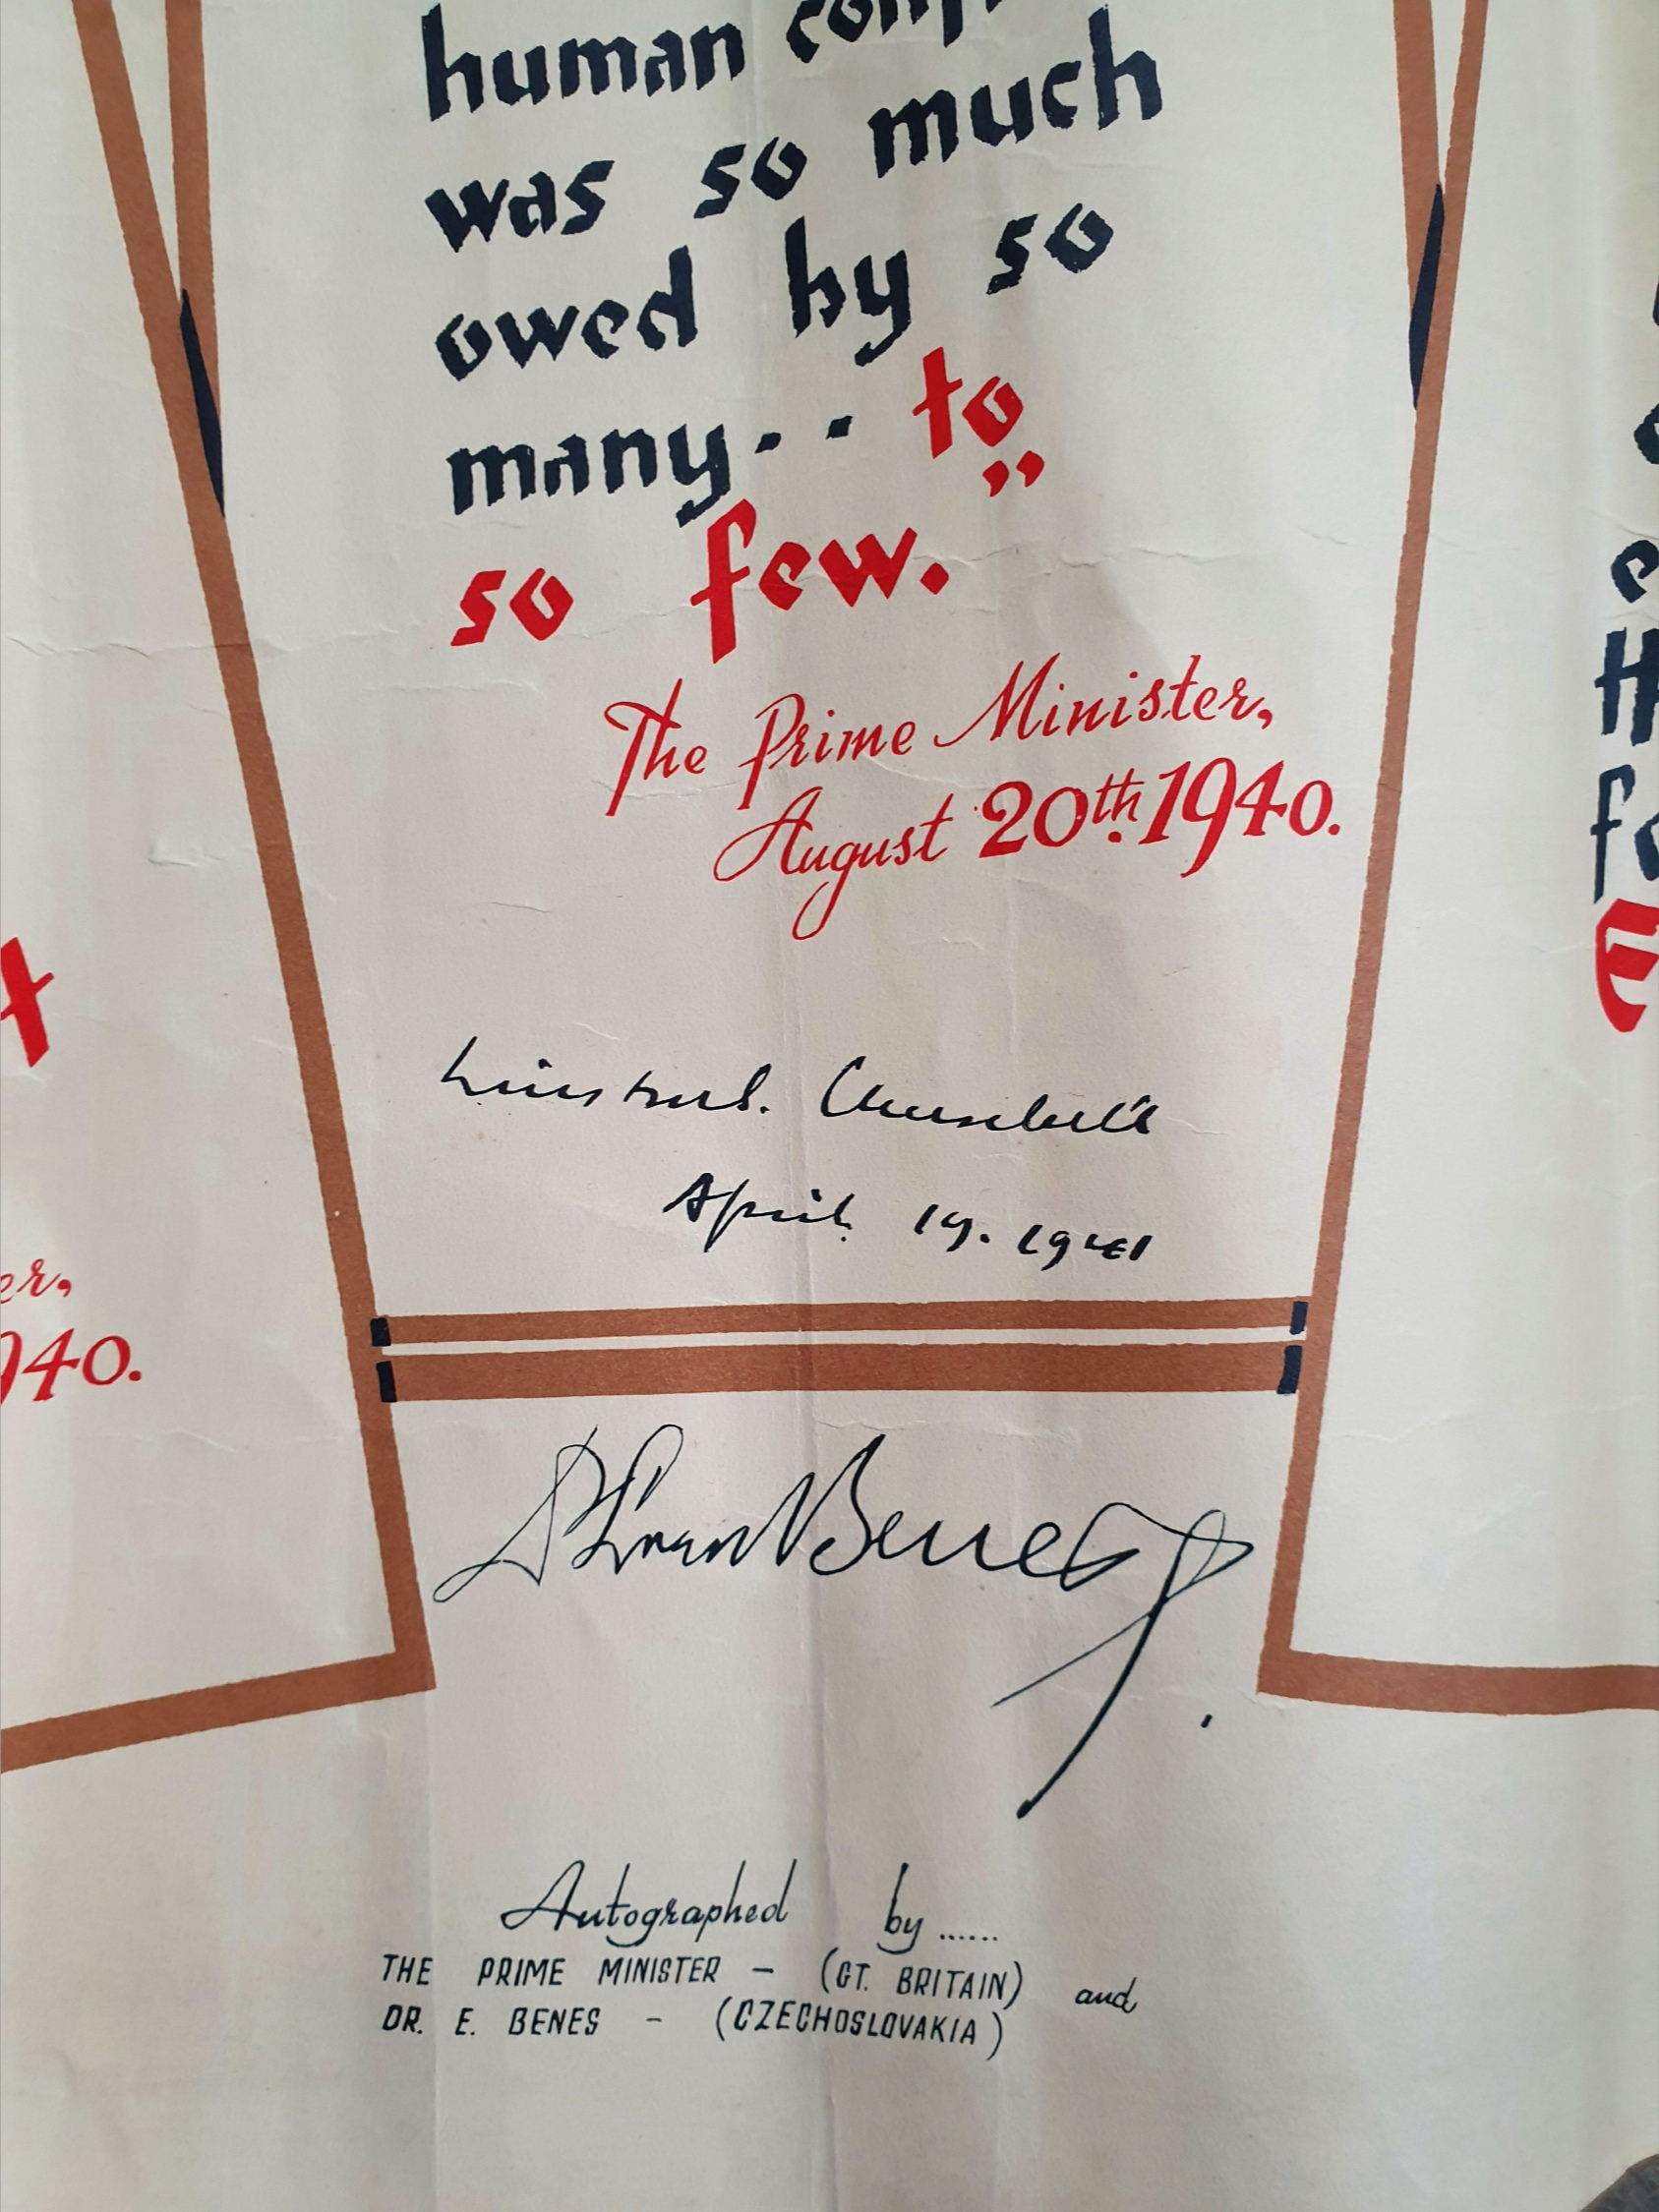 human
was so much
owed by so
many-- to
so few."
The Prime Minister,
August 20th. 1940.
er,
940.
Winston S. Churchill
April 19. 1941
Dr Edvard Beneš.
Autographed by ......
THE PRIME MINISTER — (GT. BRITAIN) and
DR. E. BENES - (CZECHOSLOVAKIA)